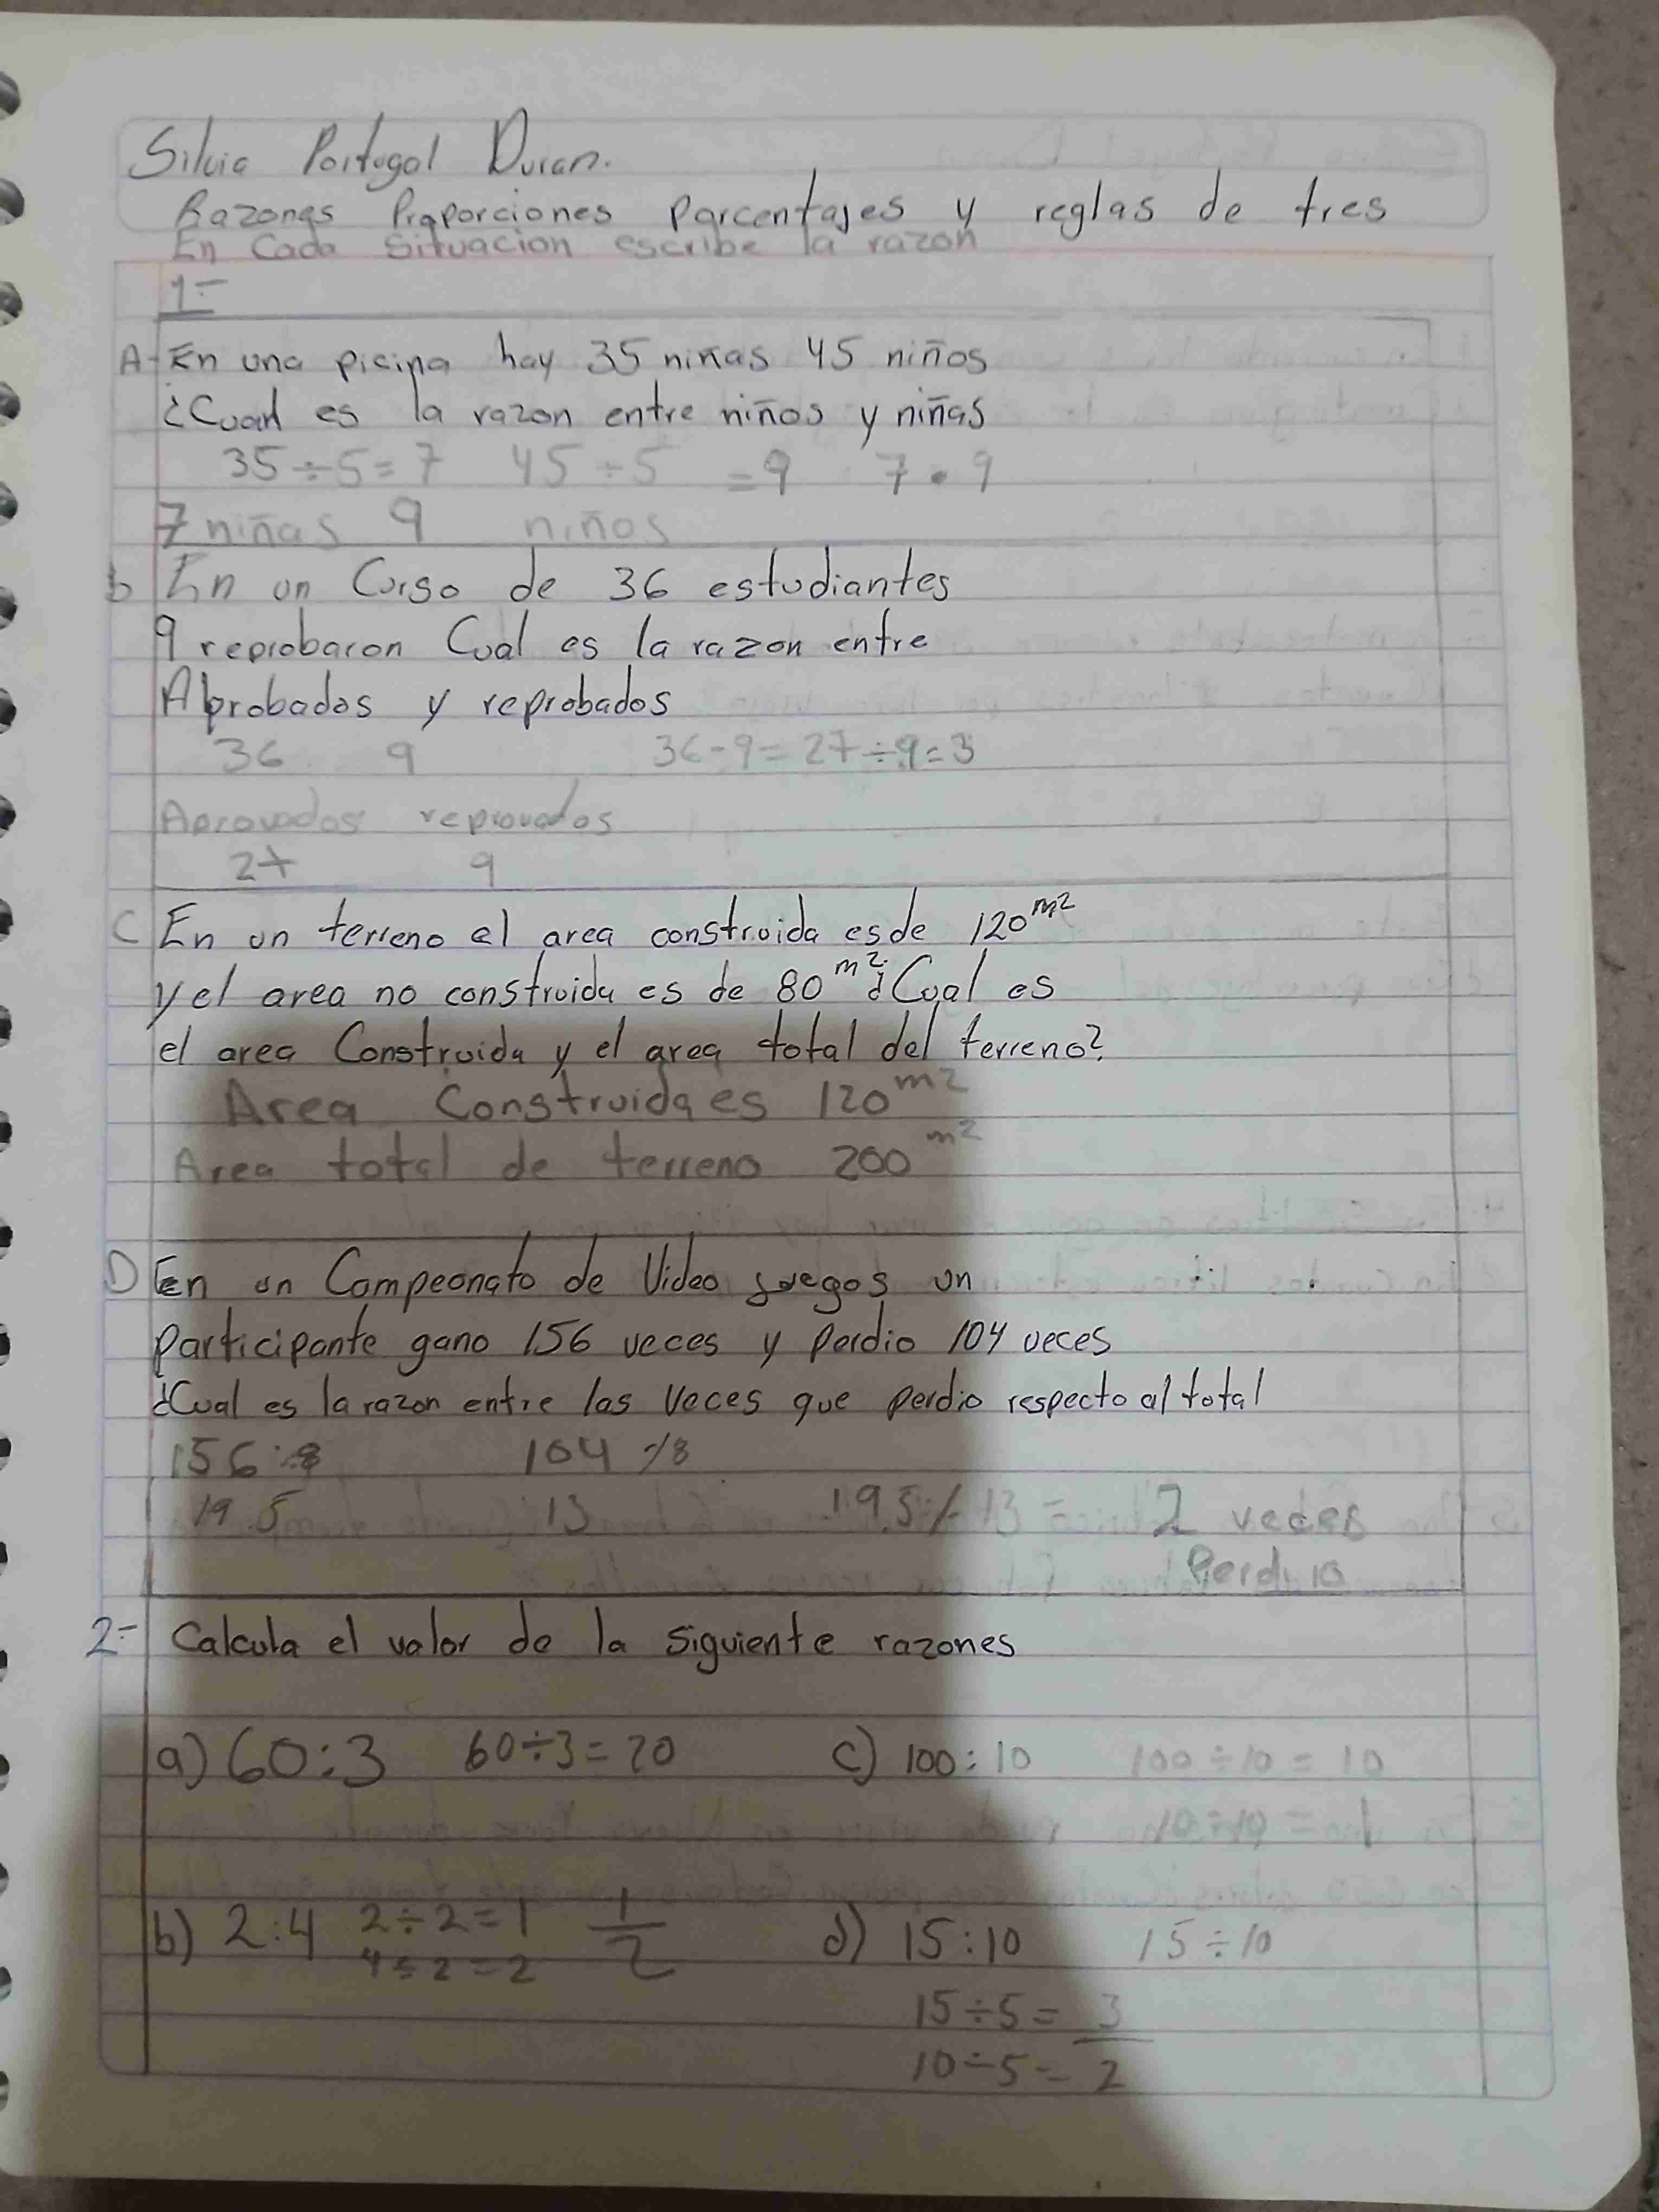 Silvia Portugal Duran.
Razones Proporciones Porcentajes y reglas de tres
En Cada Situacion escribe la razon
1-
A- En una picina hay 35 niñas 45 niños
¿Cual es la razon entre niños y niñas
35 ÷ 5 = 7 45 ÷ 5 = 9 7 • 9
7 niñas 9 niños
b En un Curso de 36 estudiantes
9 reprobaron Cual es la razon entre
Aprobados y reprobados
36 9 36 - 9 = 27 ÷ 9 = 3
Aprovados reprovados
27 9
C En un terreno el area construida es de 120 m2
y el area no construida es de 80 m2 ¿Cual es
el area Construida y el area total del terreno?
Area Construida es 120 m2
Area total de terreno 200 m2
D En un Campeonato de Video juegos un
participante gano 156 veces y perdio 104 veces
¿Cual es la razon entre las veces que perdio respecto al total
156 ÷ 8 104 ÷ 8
19.5 13 19.5 ÷ 13 = 2 veces
2- Calcula el valor de la siguiente razones
a) 60:3 60÷3=20 c) 100:10 100÷10 = 10
10÷10 = 1
b) 2:4 2÷2=1 1/2 d) 15:10 15÷10
4÷2=2
15÷5= 3
10÷5= 2